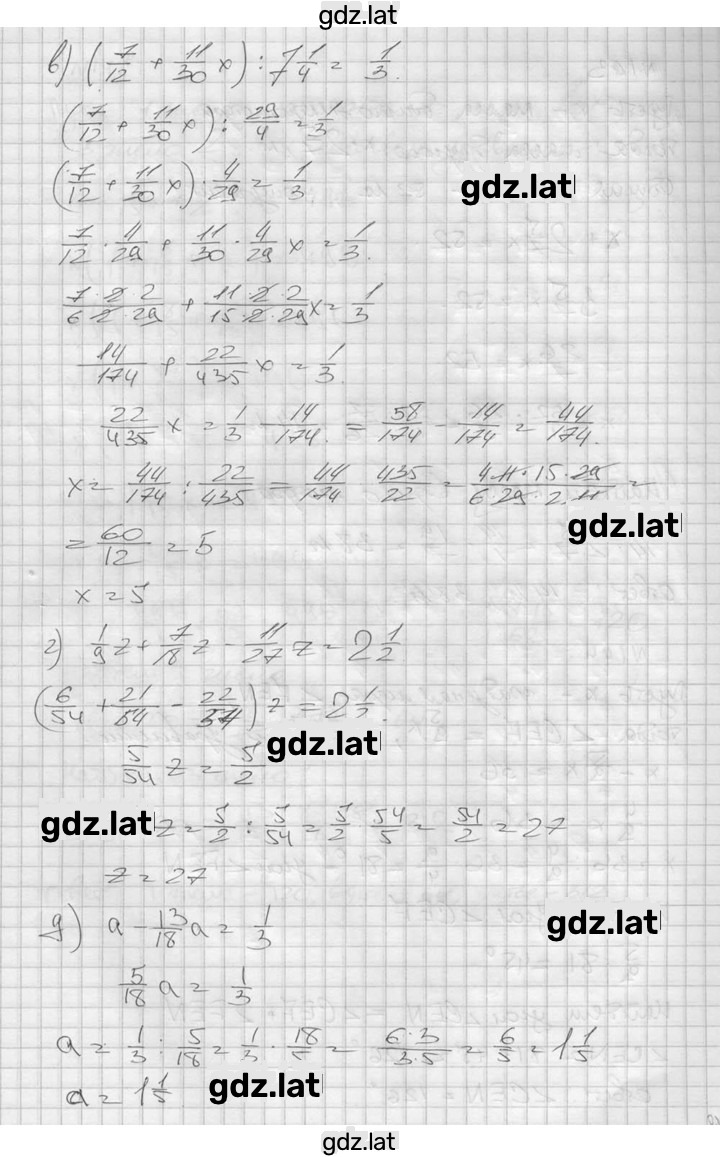 gdz.lat
в) (7/12 + 11/30 x) : 7 1/4 = 1/3.
(7/12 + 11/30 x) : 29/4 = 1/3
(7/12 + 11/30 x) · 4/29 = 1/3
gdz.lat
7/12 · 4/29 + 11/30 · 4/29 x = 1/3.
7·2·2/6·2·29 + 11·2·2/15·2·29 x = 1/3
14/174 + 22/435 x = 1/3.
22/435 x = 1/3 - 14/174. = 58/174 - 14/174 = 44/174.
x = 44/174 : 22/435 = 44/174 · 435/22 = 4·11·15·29/6·29·2·11 =
gdz.lat
= 60/12 = 5
x = 5
г) 1/9 z + 7/18 z - 11/27 z = 2 1/2
(6/54 + 21/54 - 22/54) z = 2 1/2.
gdz.lat
5/54 z = 5/2
gdz.lat
z = 5/2 : 5/54 = 5/2 · 54/5 = 54/2 = 27
z = 27
д) a - 13/18 a = 1/3
gdz.lat
5/18 a = 1/3
a = 1/3 : 5/18 = 1/3 · 18/5 = 6·3/3·5 = 6/5 = 1 1/5
a = 1 1/5.
gdz.lat
gdz.lat